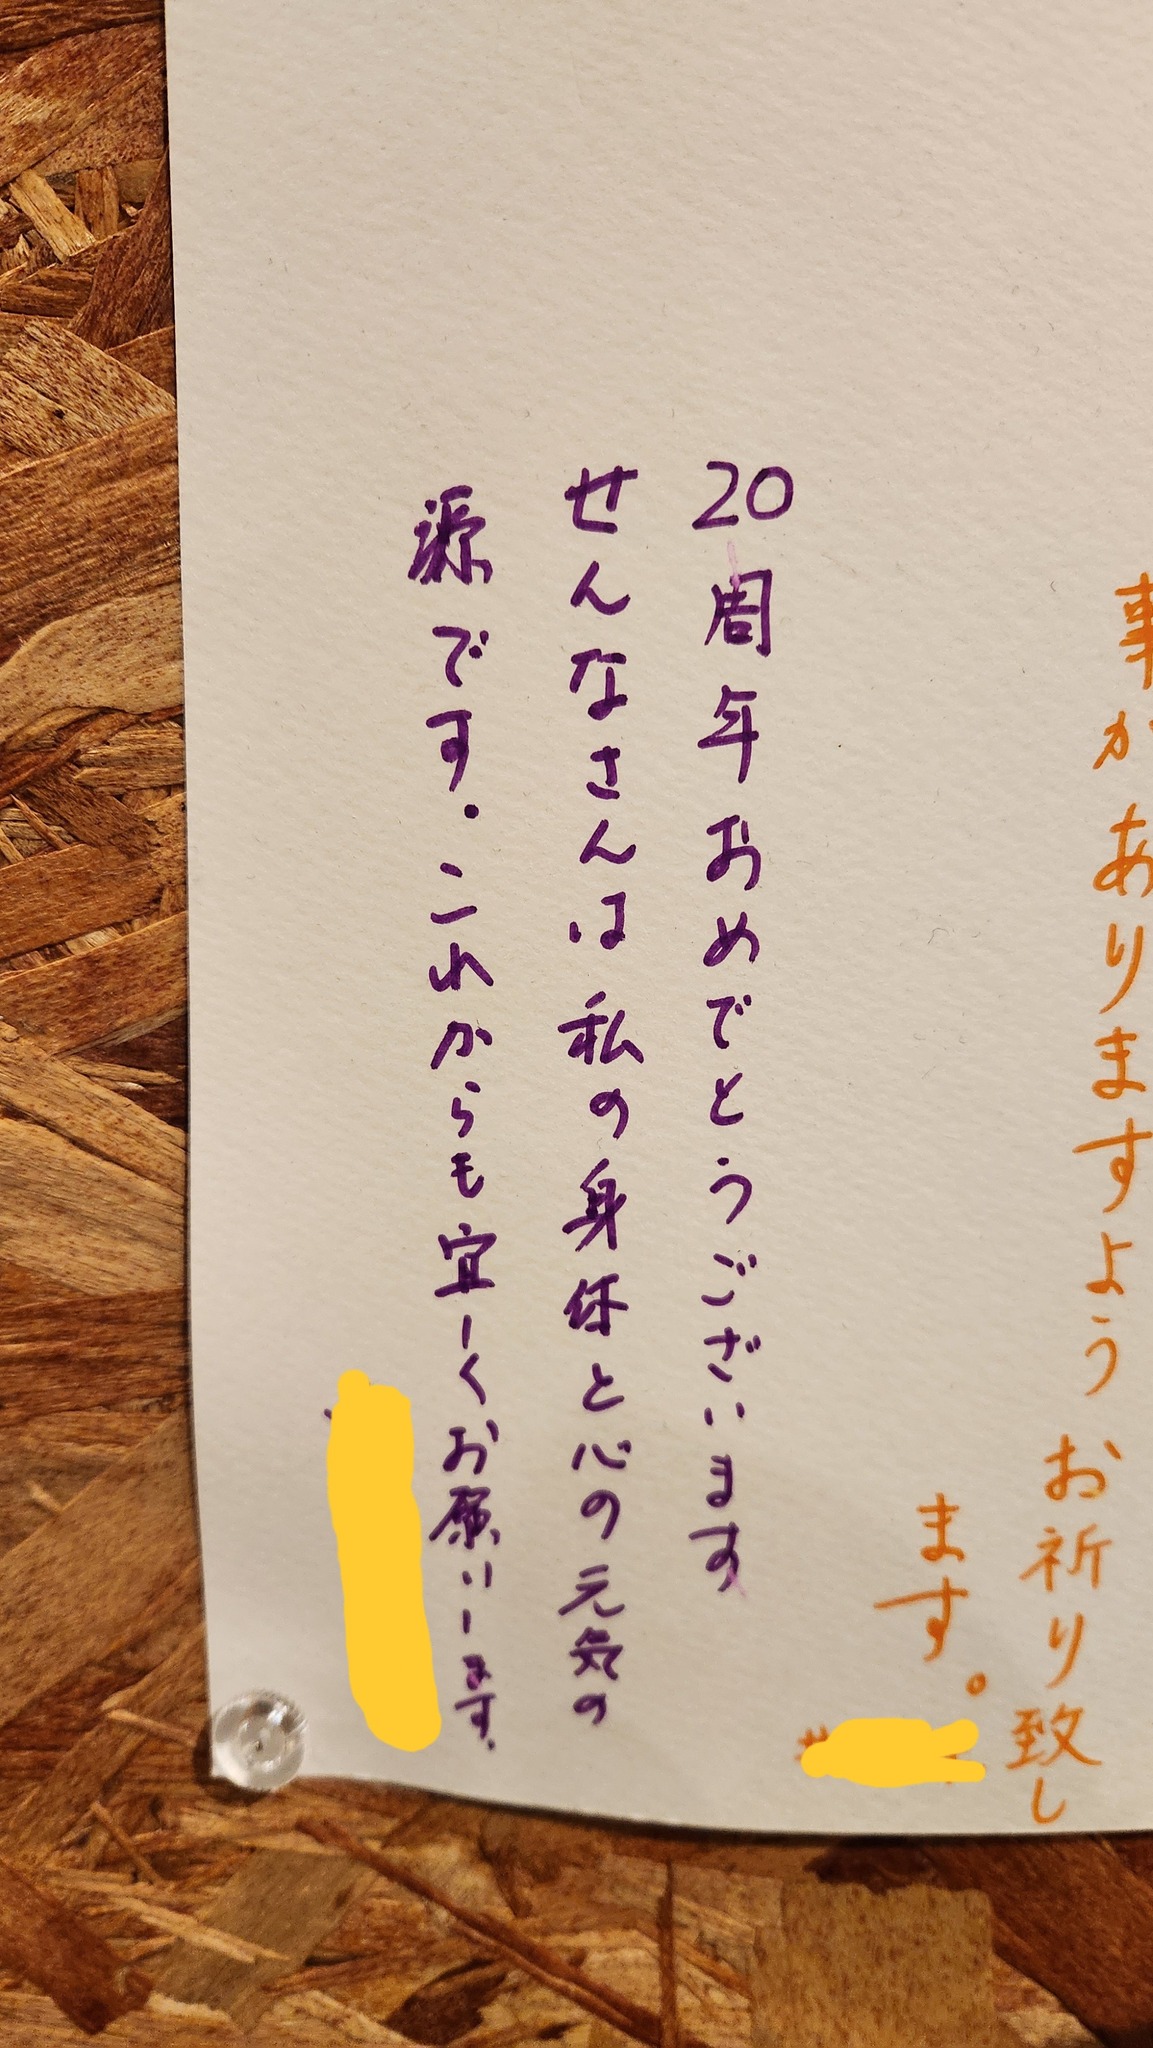 事がありますようお祈り致し
ます。
20周年おめでとうございます
せんなさんは私の身体と心の元気の
源です。これからも宜しくお願いします。